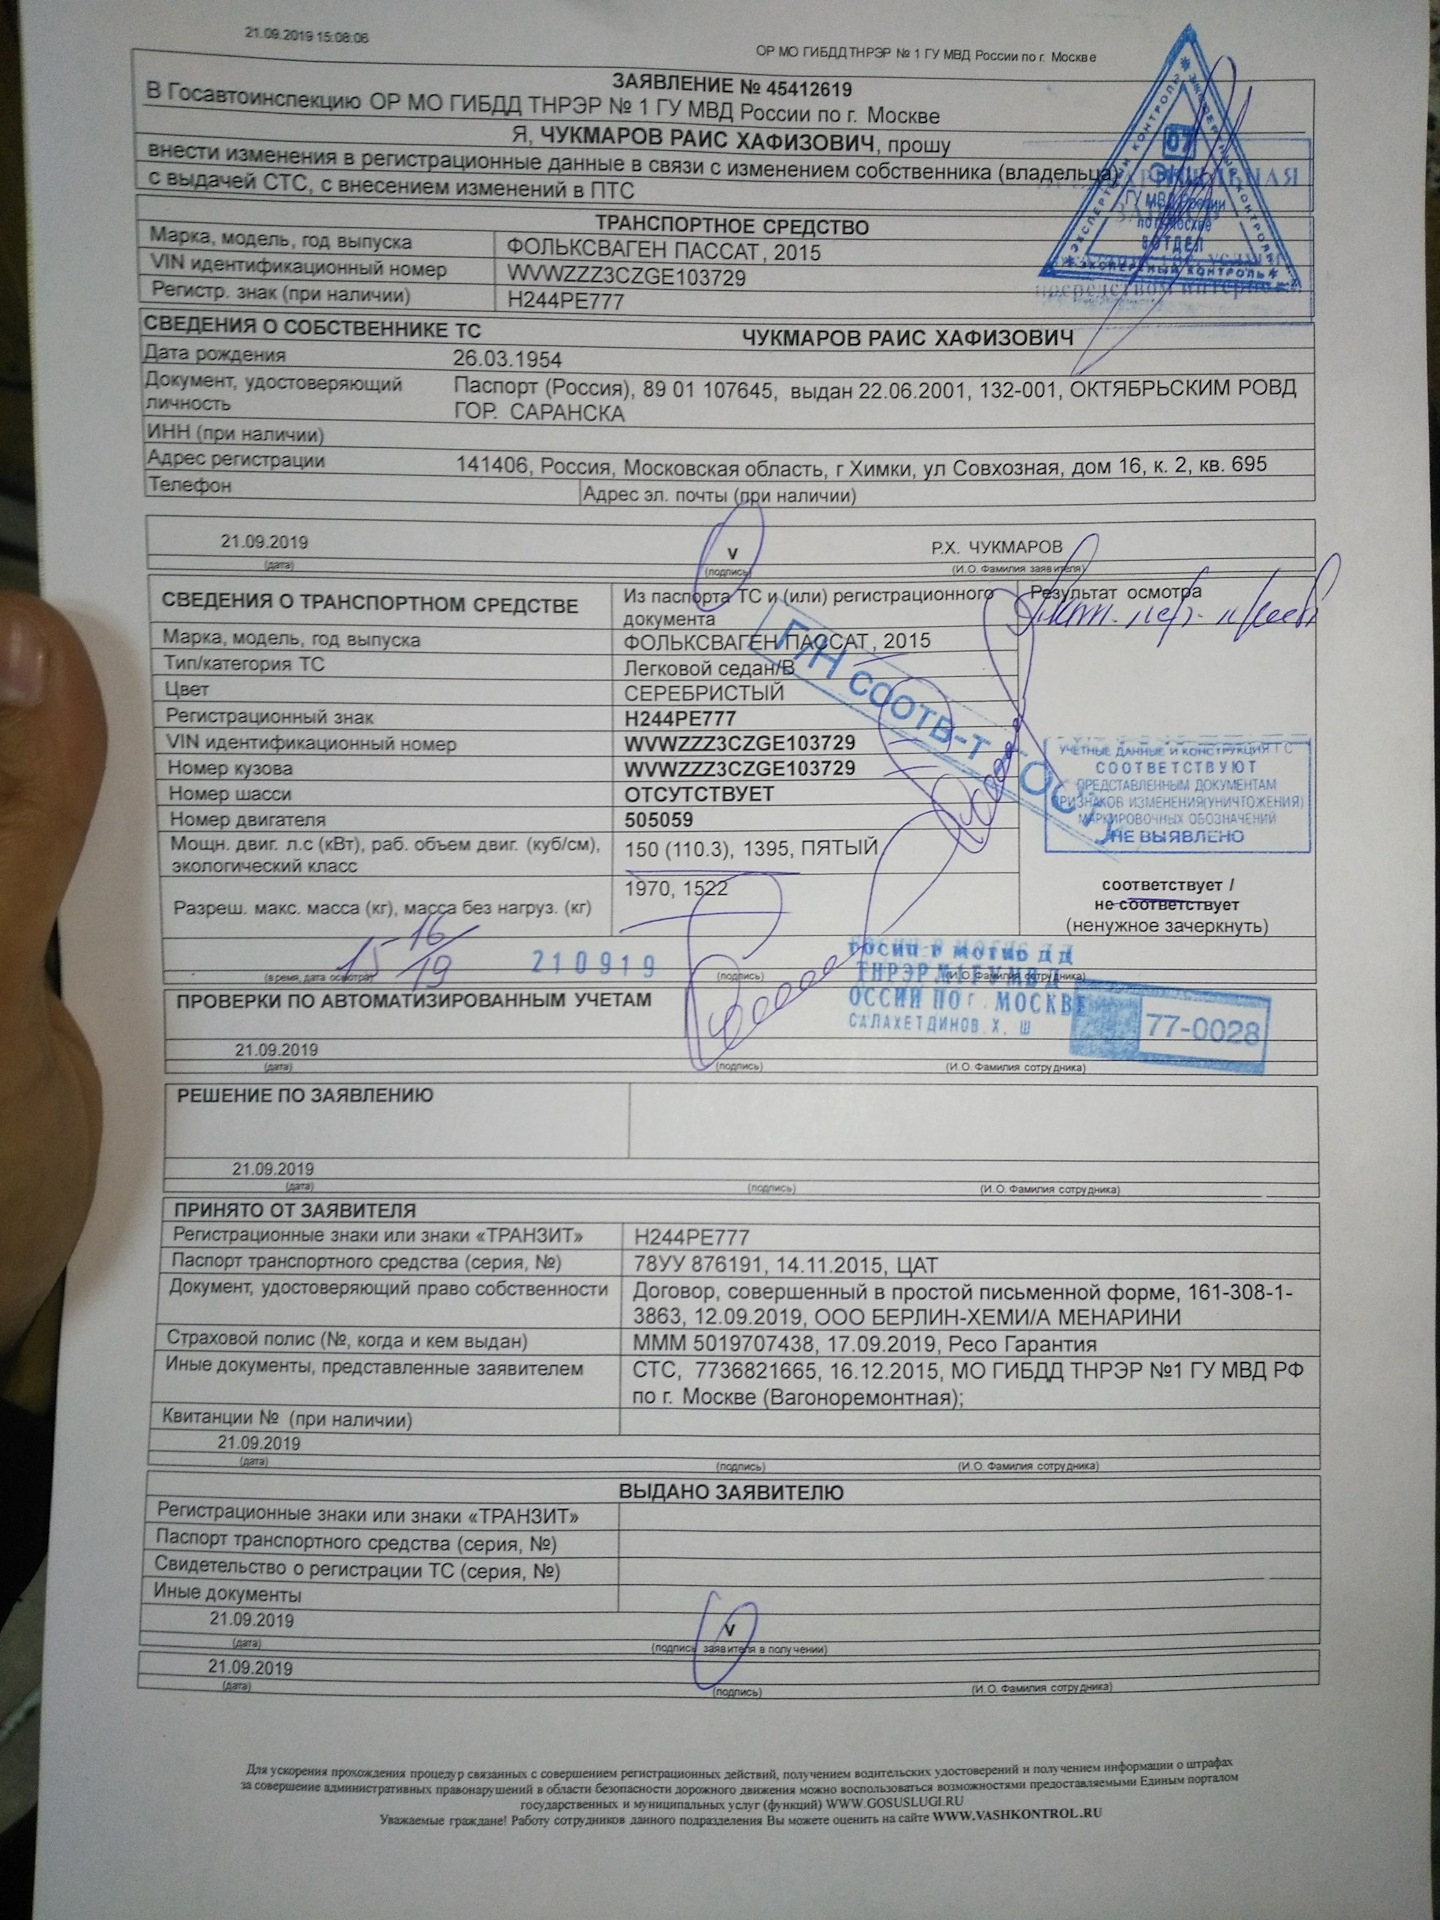 21.09.2019 15:08:06
ОР МО ГИБДД ТНРЭР № 1 ГУ МВД России по г. Москве
ЗАЯВЛЕНИЕ № 45412619
В Госавтоинспекцию ОР МО ГИБДД ТНРЭР № 1 ГУ МВД России по г. Москве
Я, ЧУКМАРОВ РАИС ХАФИЗОВИЧ, прошу
внести изменения в регистрационные данные в связи с изменением собственника (владельца)
с выдачей СТС, с внесением изменений в ПТС
ЭКСПЕРТНЫЙ КОНТРОЛЬ
07
ЭКЦ
ГУ МВД России
по г. Москве
ОТДЕЛ
посредством интернет
ТРАНСПОРТНОЕ СРЕДСТВО
Марка, модель, год выпуска ФОЛЬКСВАГЕН ПАССАТ, 2015
VIN идентификационный номер WVWZZZ3CZGE103729
Регистр. знак (при наличии) Н244РЕ777
СВЕДЕНИЯ О СОБСТВЕННИКЕ ТС ЧУКМАРОВ РАИС ХАФИЗОВИЧ
Дата рождения 26.03.1954
Документ, удостоверяющий Паспорт (Россия), 89 01 107645, выдан 22.06.2001, 132-001, ОКТЯБРЬСКИМ РОВД
личность ГОР. САРАНСКА
ИНН (при наличии)
Адрес регистрации 141406, Россия, Московская область, г Химки, ул Совхозная, дом 16, к. 2, кв. 695
Телефон Адрес эл. почты (при наличии)
21.09.2019 V Р.Х. ЧУКМАРОВ
(дата) (подпись) (И.О. Фамилия заявителя)
СВЕДЕНИЯ О ТРАНСПОРТНОМ СРЕДСТВЕ Из паспорта ТС и (или) регистрационного документа Результат осмотра
Марка, модель, год выпуска ФОЛЬКСВАГЕН ПАССАТ, 2015
Тип/категория ТС Легковой седан/В
Цвет СЕРЕБРИСТЫЙ
Регистрационный знак Н244РЕ777
VIN идентификационный номер WVWZZZ3CZGE103729
Номер кузова WVWZZZ3CZGE103729
Номер шасси ОТСУТСТВУЕТ
Номер двигателя 505059
Мощн. двиг. л.с (кВт), раб. объем двиг. (куб/см), 150 (110.3), 1395, ПЯТЫЙ
экологический класс
Разреш. макс. масса (кг), масса без нагруз. (кг) 1970, 1522
Г/Н СООТВ-Т ГОСТ
УЧЕТНЫЕ ДАННЫЕ И КОНСТРУКЦИЯ ТС
СООТВЕТСТВУЮТ
ПРЕДСТАВЛЕННЫМ ДОКУМЕНТАМ
ПРИЗНАКОВ ИЗМЕНЕНИЯ(УНИЧТОЖЕНИЯ)
МАРКИРОВОЧНЫХ ОБОЗНАЧЕНИЙ
НЕ ВЫЯВЛЕНО
соответствует /
не соответствует
(ненужное зачеркнуть)
15 16/19 210919
(время, дата осмотра) (подпись) (И.О. Фамилия сотрудника)
ТНРЭР №1 ГУ МВД
РОССИИ ПО г. МОСКВЕ
САЛАХЕТДИНОВ. Х. Ш
77-0028
ПРОВЕРКИ ПО АВТОМАТИЗИРОВАННЫМ УЧЕТАМ
21.09.2019
(дата) (подпись) (И.О. Фамилия сотрудника)
РЕШЕНИЕ ПО ЗАЯВЛЕНИЮ
21.09.2019
(дата) (подпись) (И.О. Фамилия сотрудника)
ПРИНЯТО ОТ ЗАЯВИТЕЛЯ
Регистрационные знаки или знаки «ТРАНЗИТ» Н244РЕ777
Паспорт транспортного средства (серия, №) 78УУ 876191, 14.11.2015, ЦАТ
Документ, удостоверяющий право собственности Договор, совершенный в простой письменной форме, 161-308-1-
3863, 12.09.2019, ООО БЕРЛИН-ХЕМИ/А МЕНАРИНИ
Страховой полис (№, когда и кем выдан) МММ 5019707438, 17.09.2019, Ресо Гарантия
Иные документы, представленные заявителем СТС, 7736821665, 16.12.2015, МО ГИБДД ТНРЭР №1 ГУ МВД РФ
по г. Москве (Вагоноремонтная);
Квитанции № (при наличии)
21.09.2019
(дата) (подпись) (И.О. Фамилия сотрудника)
ВЫДАНО ЗАЯВИТЕЛЮ
Регистрационные знаки или знаки «ТРАНЗИТ»
Паспорт транспортного средства (серия, №)
Свидетельство о регистрации ТС (серия, №)
Иные документы
21.09.2019 V
(дата) (подпись заявителя в получении)
21.09.2019
(дата) (подпись) (И.О. Фамилия сотрудника)
Для ускорения прохождения процедур связанных с совершением регистрационных действий, получением водительских удостоверений и получением информации о штрафах
за совершение административных правонарушений в области безопасности дорожного движения можно воспользоваться возможностями предоставляемыми Единым порталом
государственных и муниципальных услуг (функций) WWW.GOSUSLUGI.RU
Уважаемые граждане! Работу сотрудников данного подразделения Вы можете оценить на сайте WWW.VASHKONTROL.RU